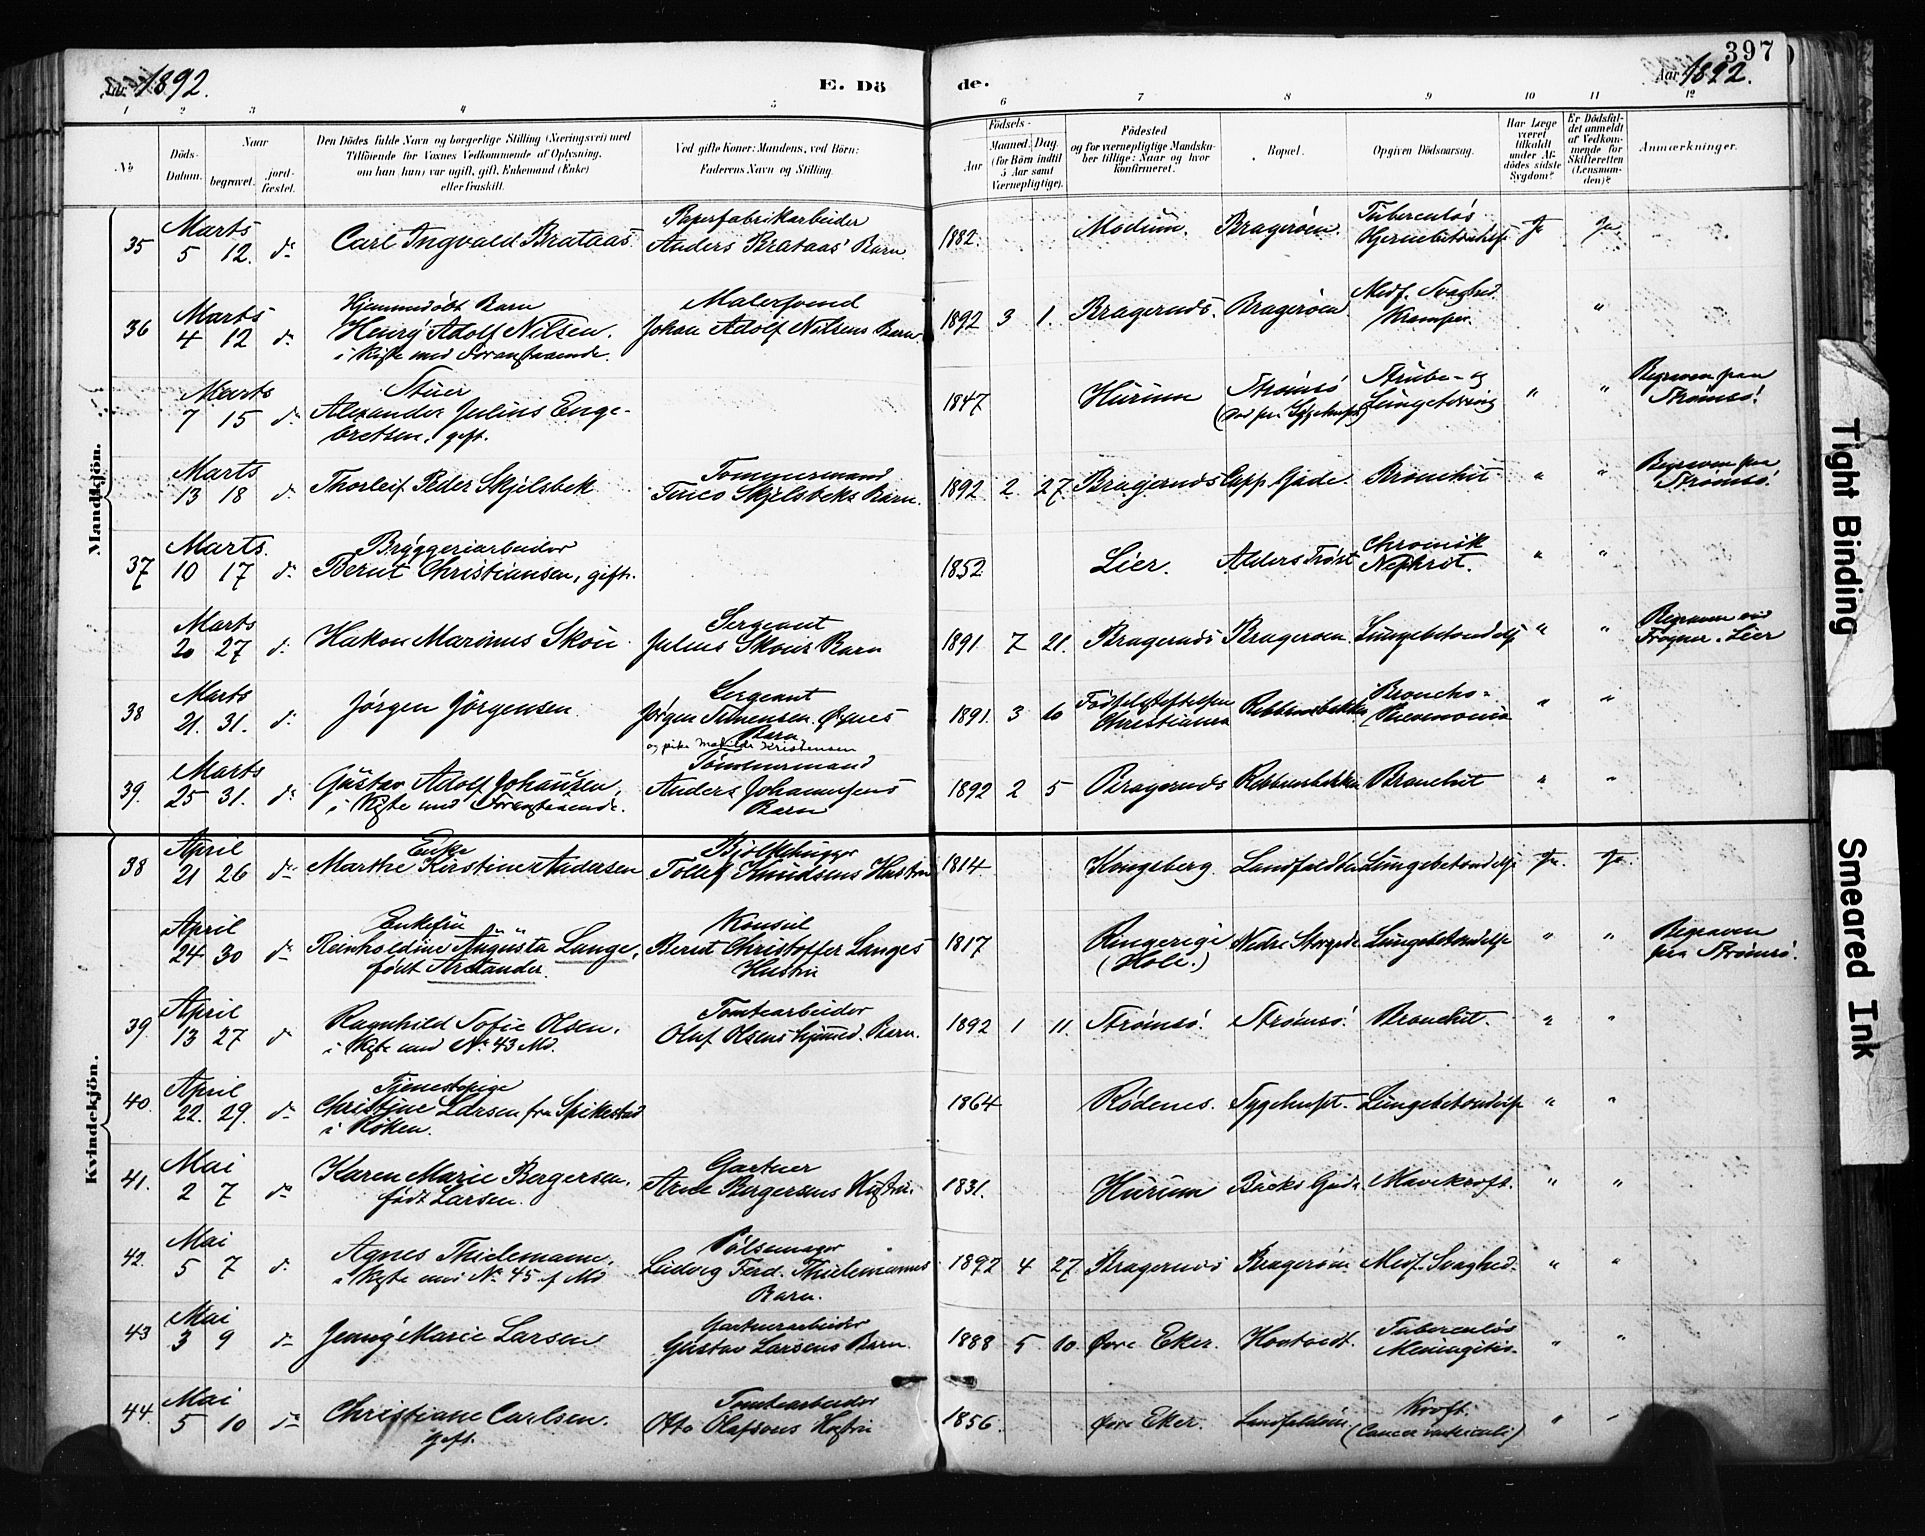 397
Aar 1892.
E. Dö
de.
Aar 1892.
1 2 3 4 5 6 7 8 9 10 11 12
No
Döds-Datum.
Naar
begravet.
jord-fæstet.
Den Dödes fulde Navn og borgerlige Stilling (Næringsvei) med
Tilföiende for Voxnes Vedkommende af Oplysning,
om han (hun) var ugift, gift, Enkemand (Enke)
eller fraskilt.
Ved gifte Koner: Mandens, ved Börn:
Faderens Navn og Stilling.
Födsels-
Aar
Maaned. Dag.
(for Börn indtil
5 Aar samt
Værnepligtige).
Födested
og for værnepligtige Mandska-
ber tillige: Naar og hvor
konfirmeret.
Bopæl.
Opgiven Dödsaarsag.
Har Læge
været
tilkaldt
under Af-
dödes sidste
Sygdom?
Er Dödsfal-
det anmeldt
af Vedkom-
mende for
Skifteretten
(Lensman-
den)?
Anmærkninger.
Mandkjön.
35 Marts 5 12. do Carl Ingvald Brataas. Papirfabrikarbeider Anders Brataas' Barn. 1882. Modum. Bragerøen. Tuberculøs Hjernebetændelse Ja Ja
36 Marts 4 12 do Hjemmedøbt Barn Henry Adolf Nilsen. i Kiste med Foranstaaende. Malersvend Johan Adolf Nilsens Barn. 1892 3 1. Bragernæs. Bragerøen Medf. Svaghed. Kramper. "
Marts 7 15 do Stuer Alexander Julius Engebretsen, gift. 1847 Hurum Strømsö (død paa Sygehuset) Strube- og Lungetæring " " Begraven paa Strømsö.
Marts 13 18 do Thorleif Peder Skjelsbek Tømmermand Skjelsbeks Barn. 1892 2 27. Bragernæs Capp. Gade. Bronchit " " Begraven paa Strømsö.
37 Marts. 10 17 do Bryggeriarbeider Bernt Christiansen, gift. 1852. Lier. Alders Trøst Chronisk Nephrit. " "
Marts 20 27 do Hakon Marinus Skou Sergeant Julius Skous Barn 1891 7 21. Bragernæs Bragerøen Lungebetændelse " " Begraven ved Frogner. Lier
38 Marts 21. 31. do Jørgen Jörgensen. Sergeant Jørgen Simensen Øxnes Barn og pike Matilde Kristensen 1891. 3 10 Födselsstiftelsen Christiania Rebbansbakken Broncho-Pneumonia " "
39. Marts 25 31. do Gustav Adolf Johansen, i Kiste med Foranstaaende. Tömmermand Anders Johannesens Barn 1892 2 5 Bragernæs Rebbansbakken Bronchit " "
Kvindekjön.
38 April 21 26 do Enke Marthe Kirstine Andersen Bjelkehugger Tollef Knudsens Hustru 1814 Kongsberg. Landfaldöen Lungebetændelse Ja. Ja.
April 24 30 do Enkefru Reinholdine Augusta Lange, födt Arctander. Konsul Bernt Christoffer Langes Hustru 1817 Ringerige (Hole.) Nedre Storgade Lungebetændelse " " Begraven paa Strømsö.
39. April 13 27 do Ragnhild Sofie Olsen, i Kiste med No 43 Md. Tomtearbeider Oluf Olsens hjmd. Barn. 1892 1 11. Strømsö. Strømsö. Bronchit. " "
40. April 22. 29. do Tjenestepige Christine Larsen fra Spikestad i Röken. 1864 Rödenes. Sygehuset. Lungebetændelse " "
41. Mai 2 7 do Karen Marie Bergersen, födt Larsen. Gartner Arne Bergersens Hustru. 1831. Hurum Bäcks Gade. Mavekræft. " "
42. Mai 5 7 do Agnes Thielemann. i Kiste med No 45 f Md Pölsemager Ludvig Ferd. Thielemanns Barn. 1892 4 27. Bragernæs Bragerøen Medf. Svaghed. " "
43 Mai 3 9 do Jenny Marie Larsen Gartnerarbeider Gustav Larsens Barn. 1888 5 10. Øvre Eker. Hovtvedt. Tuberculøs Meningitis. " "
44. Mai 5 10 do Christiane Carlsen. gift. Tomtearbeider Otto Olafsens Hustru 1856. Øvre Eker. Landfaldöen Kræft. (Cancer ventriculi) " "
Tight Binding
Smeared Ink